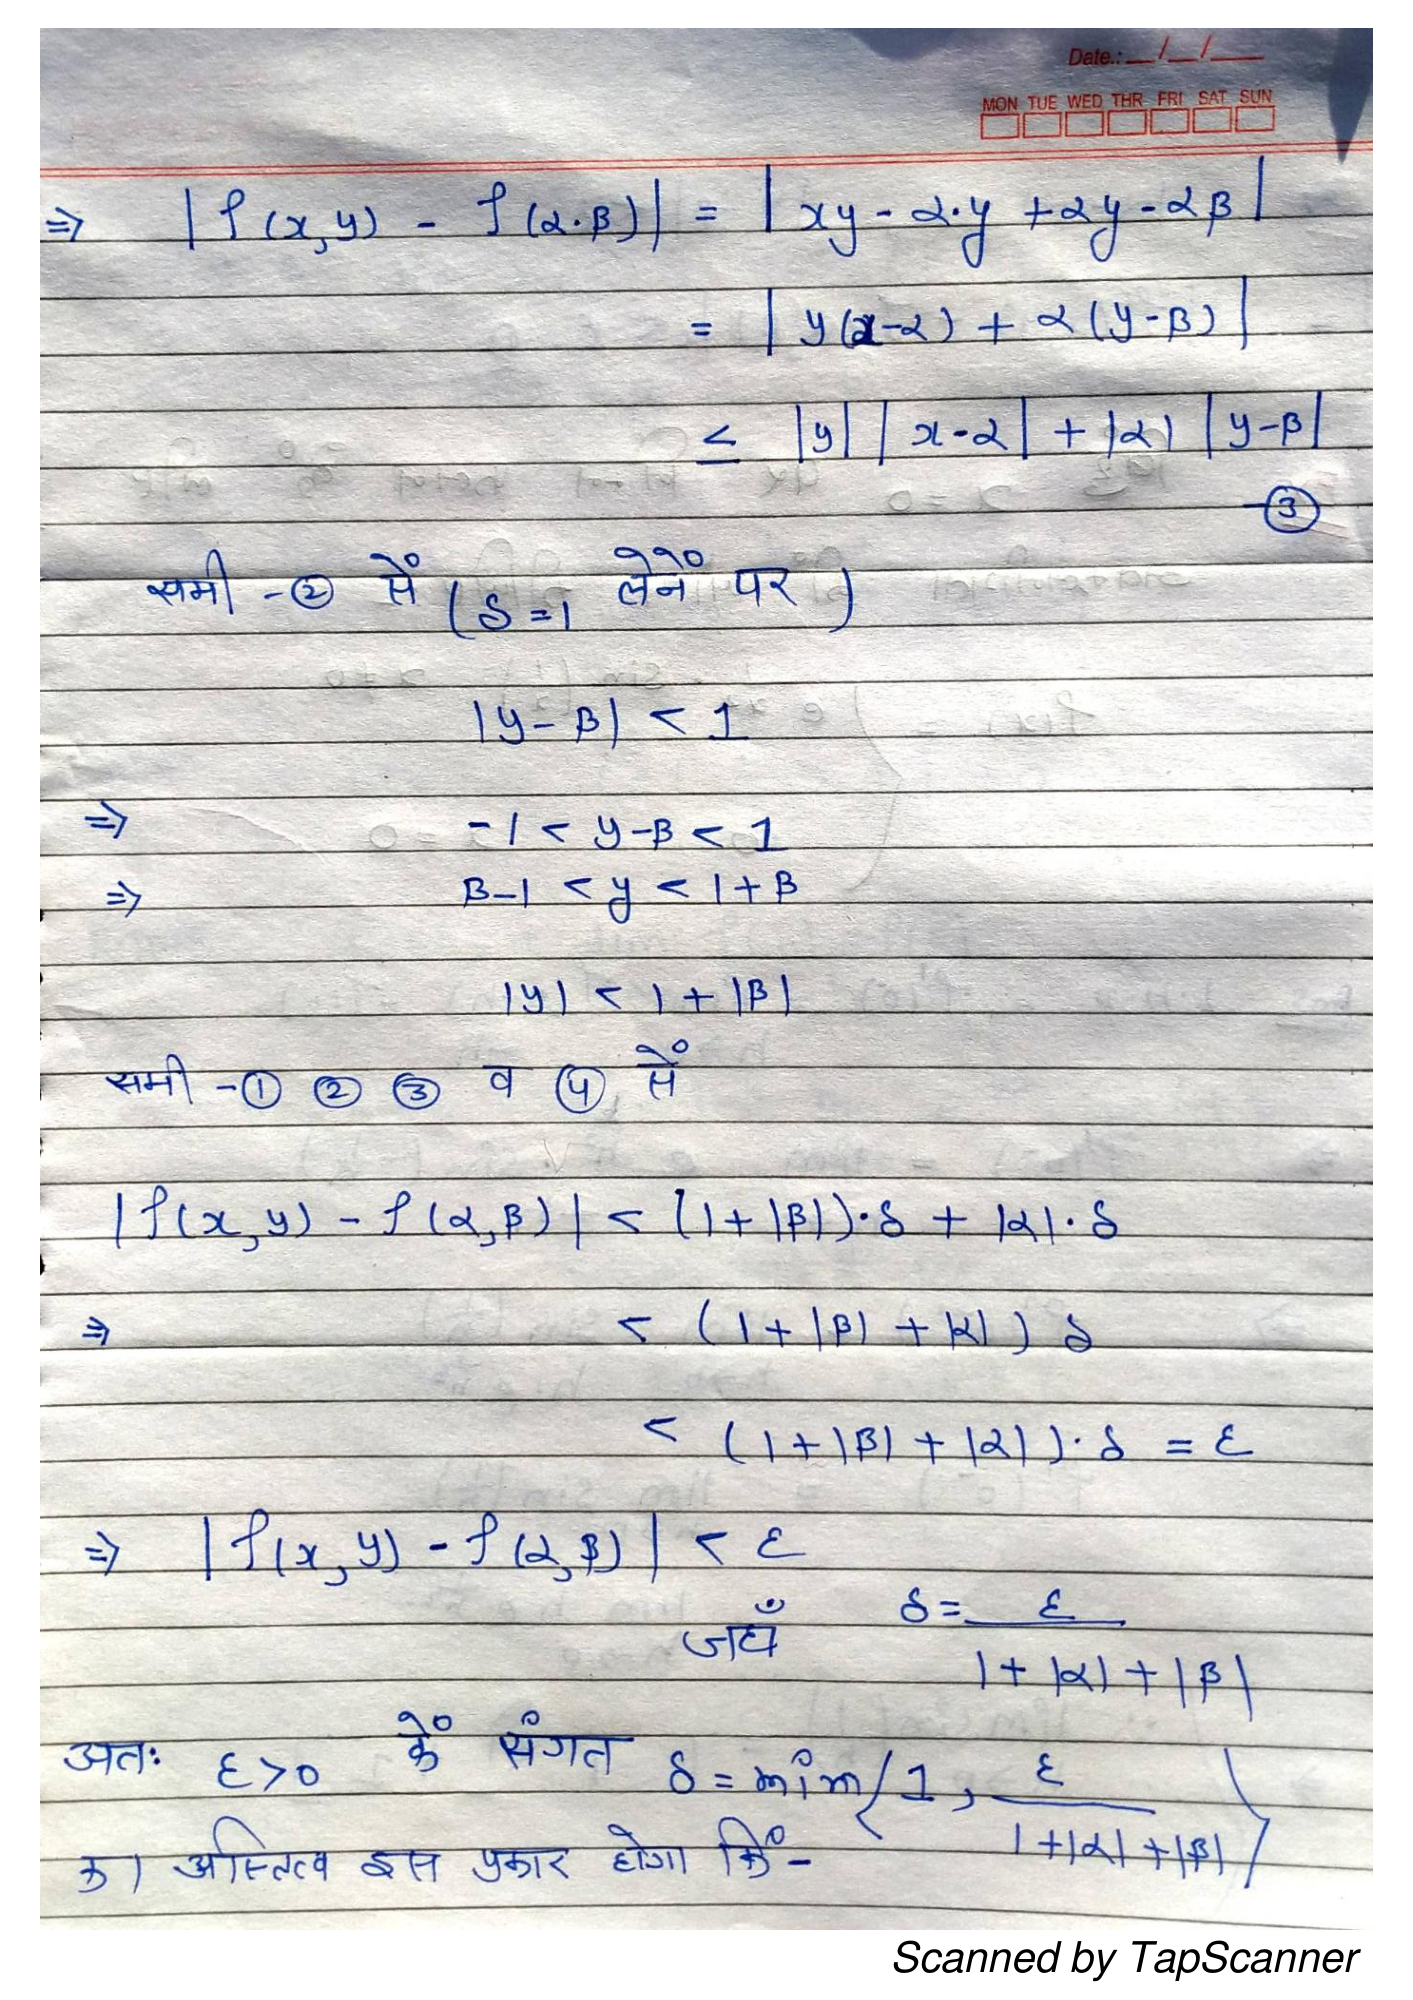 Date.: __/__/__
MON TUE WED THR FRI SAT SUN
⇒ |f(x,y) - f(α·β)| = |xy - α·y + αy - αβ|
= |y(x-α) + α(y-β)|
≤ |y| |x-α| + |α| |y-β|
-③
समी -② सें (δ=1 लेनें पर)
|y-β| < 1
⇒ -1 < y-β < 1
⇒ β-1 < y < 1+β
|y| < 1 + |β|
समी -① ② ③ व ④ सें
|f(x,y) - f(α,β)| < (1+|β|)·δ + |α|·δ
⇒ < (1+|β| + |α|) δ
< (1+|β| + |α|)·δ = ε
⇒ |f(x,y) - f(α,β)| < ε
जहाँ δ = ε / 1+|α|+|β|
अतः ε>0 कें संगत δ = min(1, ε / 1+|α|+|β|)
का अस्तित्व इस प्रकार होगा किं -
Scanned by TapScanner